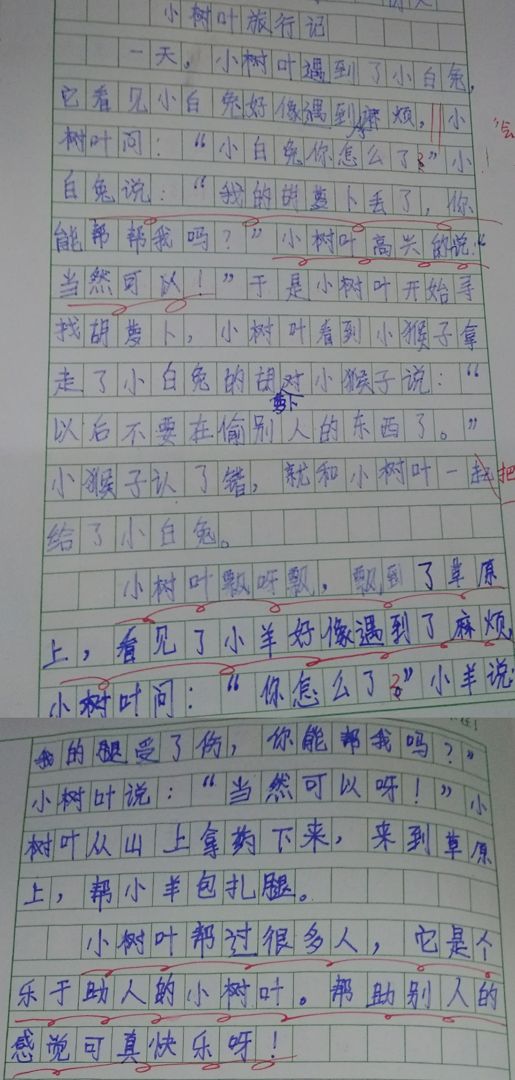 小树叶旅行记
一天，小树叶遇到了小白兔，
它看见小白兔好像遇到麻烦，小
树叶问：“小白兔你怎么了？”小
白兔说：“我的胡萝卜丢了，你
能帮帮我吗？”小树叶高兴的说：“
当然可以！”于是小树叶开始寻
找胡萝卜，小树叶看到小猴子拿
走了小白兔的胡萝卜对小猴子说：“
以后不要在偷别人的东西了。”
小猴子认了错，就和小树叶一起把
给了小白兔。
小树叶飘呀飘，飘到了草原
上，看见了小羊好像遇到了麻烦，
小树叶问：“你怎么了？”小羊说：
我的腿受了伤，你能帮我吗？”
小树叶说：“当然可以呀！”小
树叶从山上拿药下来，来到草原
上，帮小羊包扎腿。
小树叶帮过很多人，它是个
乐于助人的小树叶。帮助别人的
感觉可真快乐呀！